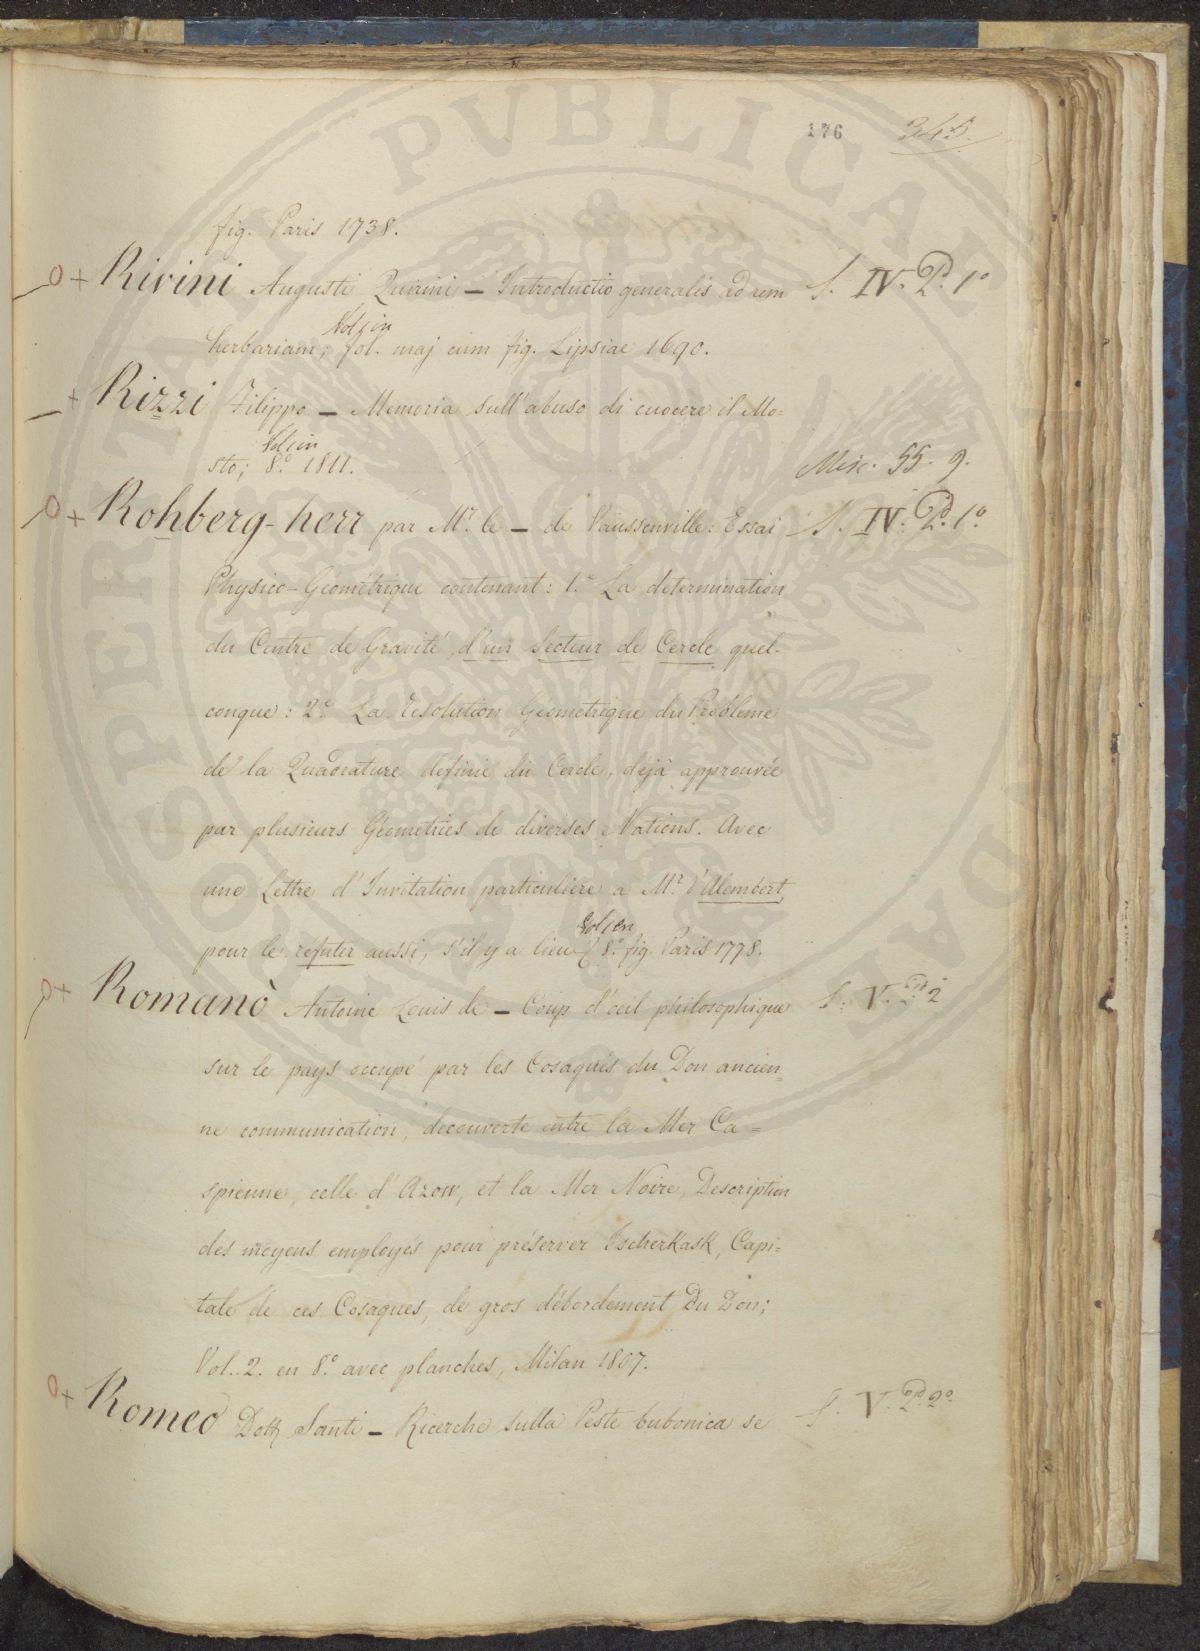 176 345.
fig. Paris 1738.
Rivini Augusti Quirini — Introductio generalis ad rem S. IV. Pd. 1º
Vol. in
herbariam; fol. maj cum fig. Lipsiae 1690.
Rizzi Filippo — Memoria sull'abuso di cuocere il Mo=
Vol. in
sto; 8º. 1811. Misc. 55. 9.
Rohberg-herr par Mr. le — de Vaussenville: Essai S. IV. Pd. 1º
Physico-Géométrique contenant: 1º La determination
du Centre de Gravité d'un Secteur de Cercle quel-
conque: 2º La Resolution Géometrique du Problème
de la Quadrature définie du Cercle, dejà approuvée
par plusieurs Géometries de diverses Nations. Avec
une Lettre d'Invitation particuliere a Mr. d'Alembert,
Vol. en
pour le refuter aussi, s'il y a lieu 8º fig. Paris 1778.
Romanò Antoine Louis de — Coup d'oeil philosophique S. V. Pd. 2
sur le pays occupé par les Cosaques du Don ancien=
ne communication, decouverte entre la Mer Ca=
spienne, celle d'Azow, et la Mer Noire, Description
des moyens employés pour préserver Tscherkask, Capi=
tale de ces Cosaques, de gros débordement du Don;
Vol. 2. en 8º avec planches, Milan 1807.
Romeo Dott Santi — Ricerche sulla Peste bubonica se S. V. Pd. 2º
PROSPERITATI PVBLICAE AVGENDAE